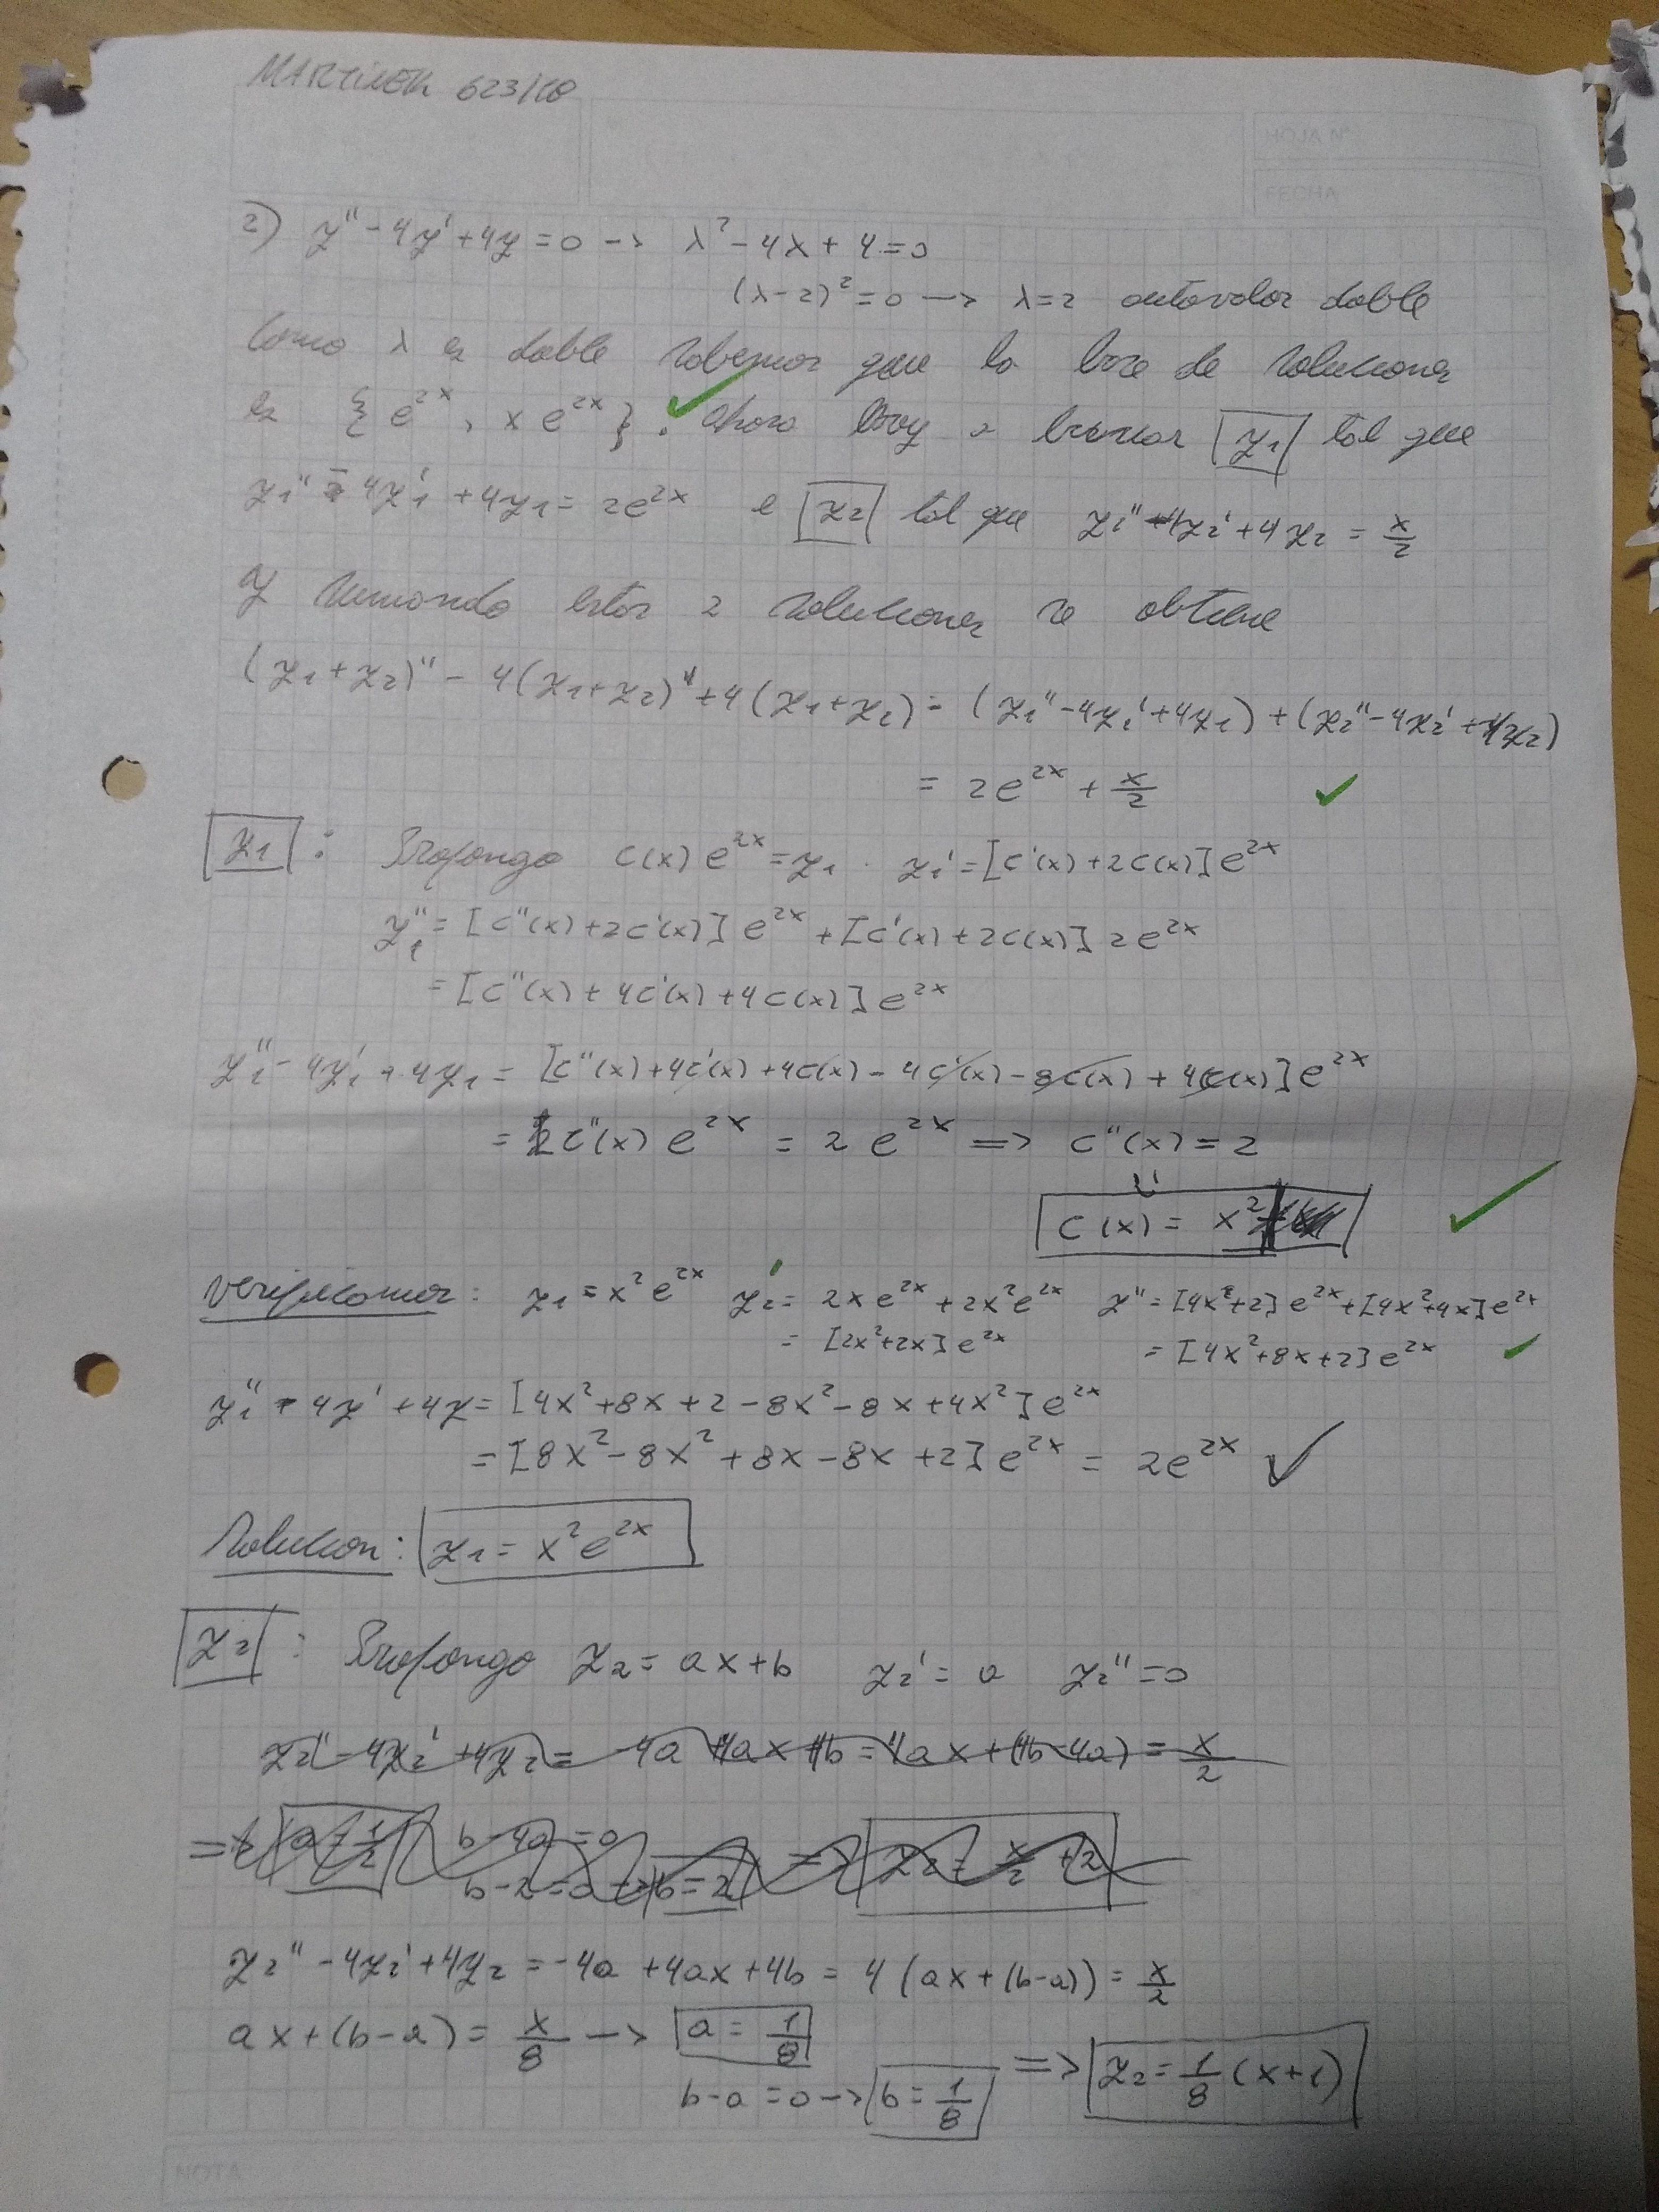 MARTINEZ 623/18
HOJA N°
FECHA
2) y'' - 4y' + 4y = 0 -> λ² - 4λ + 4 = 0
(λ-2)² = 0 -> λ=2 autovalor doble
Como λ es doble sabemos que la base de soluciones
es { e^{2x}, x e^{2x} }. Ahora voy a buscar y₁ tal que
y₁'' - 4y₁' + 4y₁ = 2e^{2x} e y₂ tal que y₂'' - 4y₂' + 4y₂ = x/2
Y sumando estas 2 soluciones se obtiene
(y₁+y₂)'' - 4(y₁+y₂)' + 4(y₁+y₂) = (y₁'' - 4y₁' + 4y₁) + (y₂'' - 4y₂' + 4y₂)
= 2e^{2x} + x/2 ✓
y₁ : Propongo c(x) e^{2x} = y₁ . y₁' = [c'(x) + 2c(x)] e^{2x}
y₁'' = [c''(x) + 2c'(x)] e^{2x} + [c'(x) + 2c(x)] 2e^{2x}
= [c''(x) + 4c'(x) + 4c(x)] e^{2x}
y₁'' - 4y₁' + 4y₁ = [c''(x) + 4c'(x) + 4c(x) - 4c'(x) - 8c(x) + 4c(x)] e^{2x}
= c''(x) e^{2x} = 2 e^{2x} => c''(x) = 2
c(x) = x²
Verificamos: y₁ = x² e^{2x} y₂' = 2x e^{2x} + 2x² e^{2x} y'' = [4x+2] e^{2x} + [4x²+4x] e^{2x}
= [2x²+2x] e^{2x} = [4x²+8x+2] e^{2x} ✓
y₁'' - 4y' + 4y = [4x² + 8x + 2 - 8x² - 8x + 4x²] e^{2x}
= [8x² - 8x² + 8x - 8x + 2] e^{2x} = 2e^{2x} ✓
Solucion: y₁ = x² e^{2x}
y₂ : Propongo y₂ = ax+b y₂' = a y₂'' = 0
y₂'' - 4y₂' + 4y₂ = -4a + 4ax + 4b = 4ax + (4b-4a) = x/2
=> a = 1/2 b - 4a = 0 => y₂ = x/2 + 2
b - 2 = 0 -> b = 2
y₂'' - 4y₂' + 4y₂ = -4a + 4ax + 4b = 4 (ax + (b-a)) = x/2
ax + (b-a) = x/8 -> a = 1/8
b-a = 0 -> b = 1/8 => y₂ = 1/8 (x+1)
NOTA